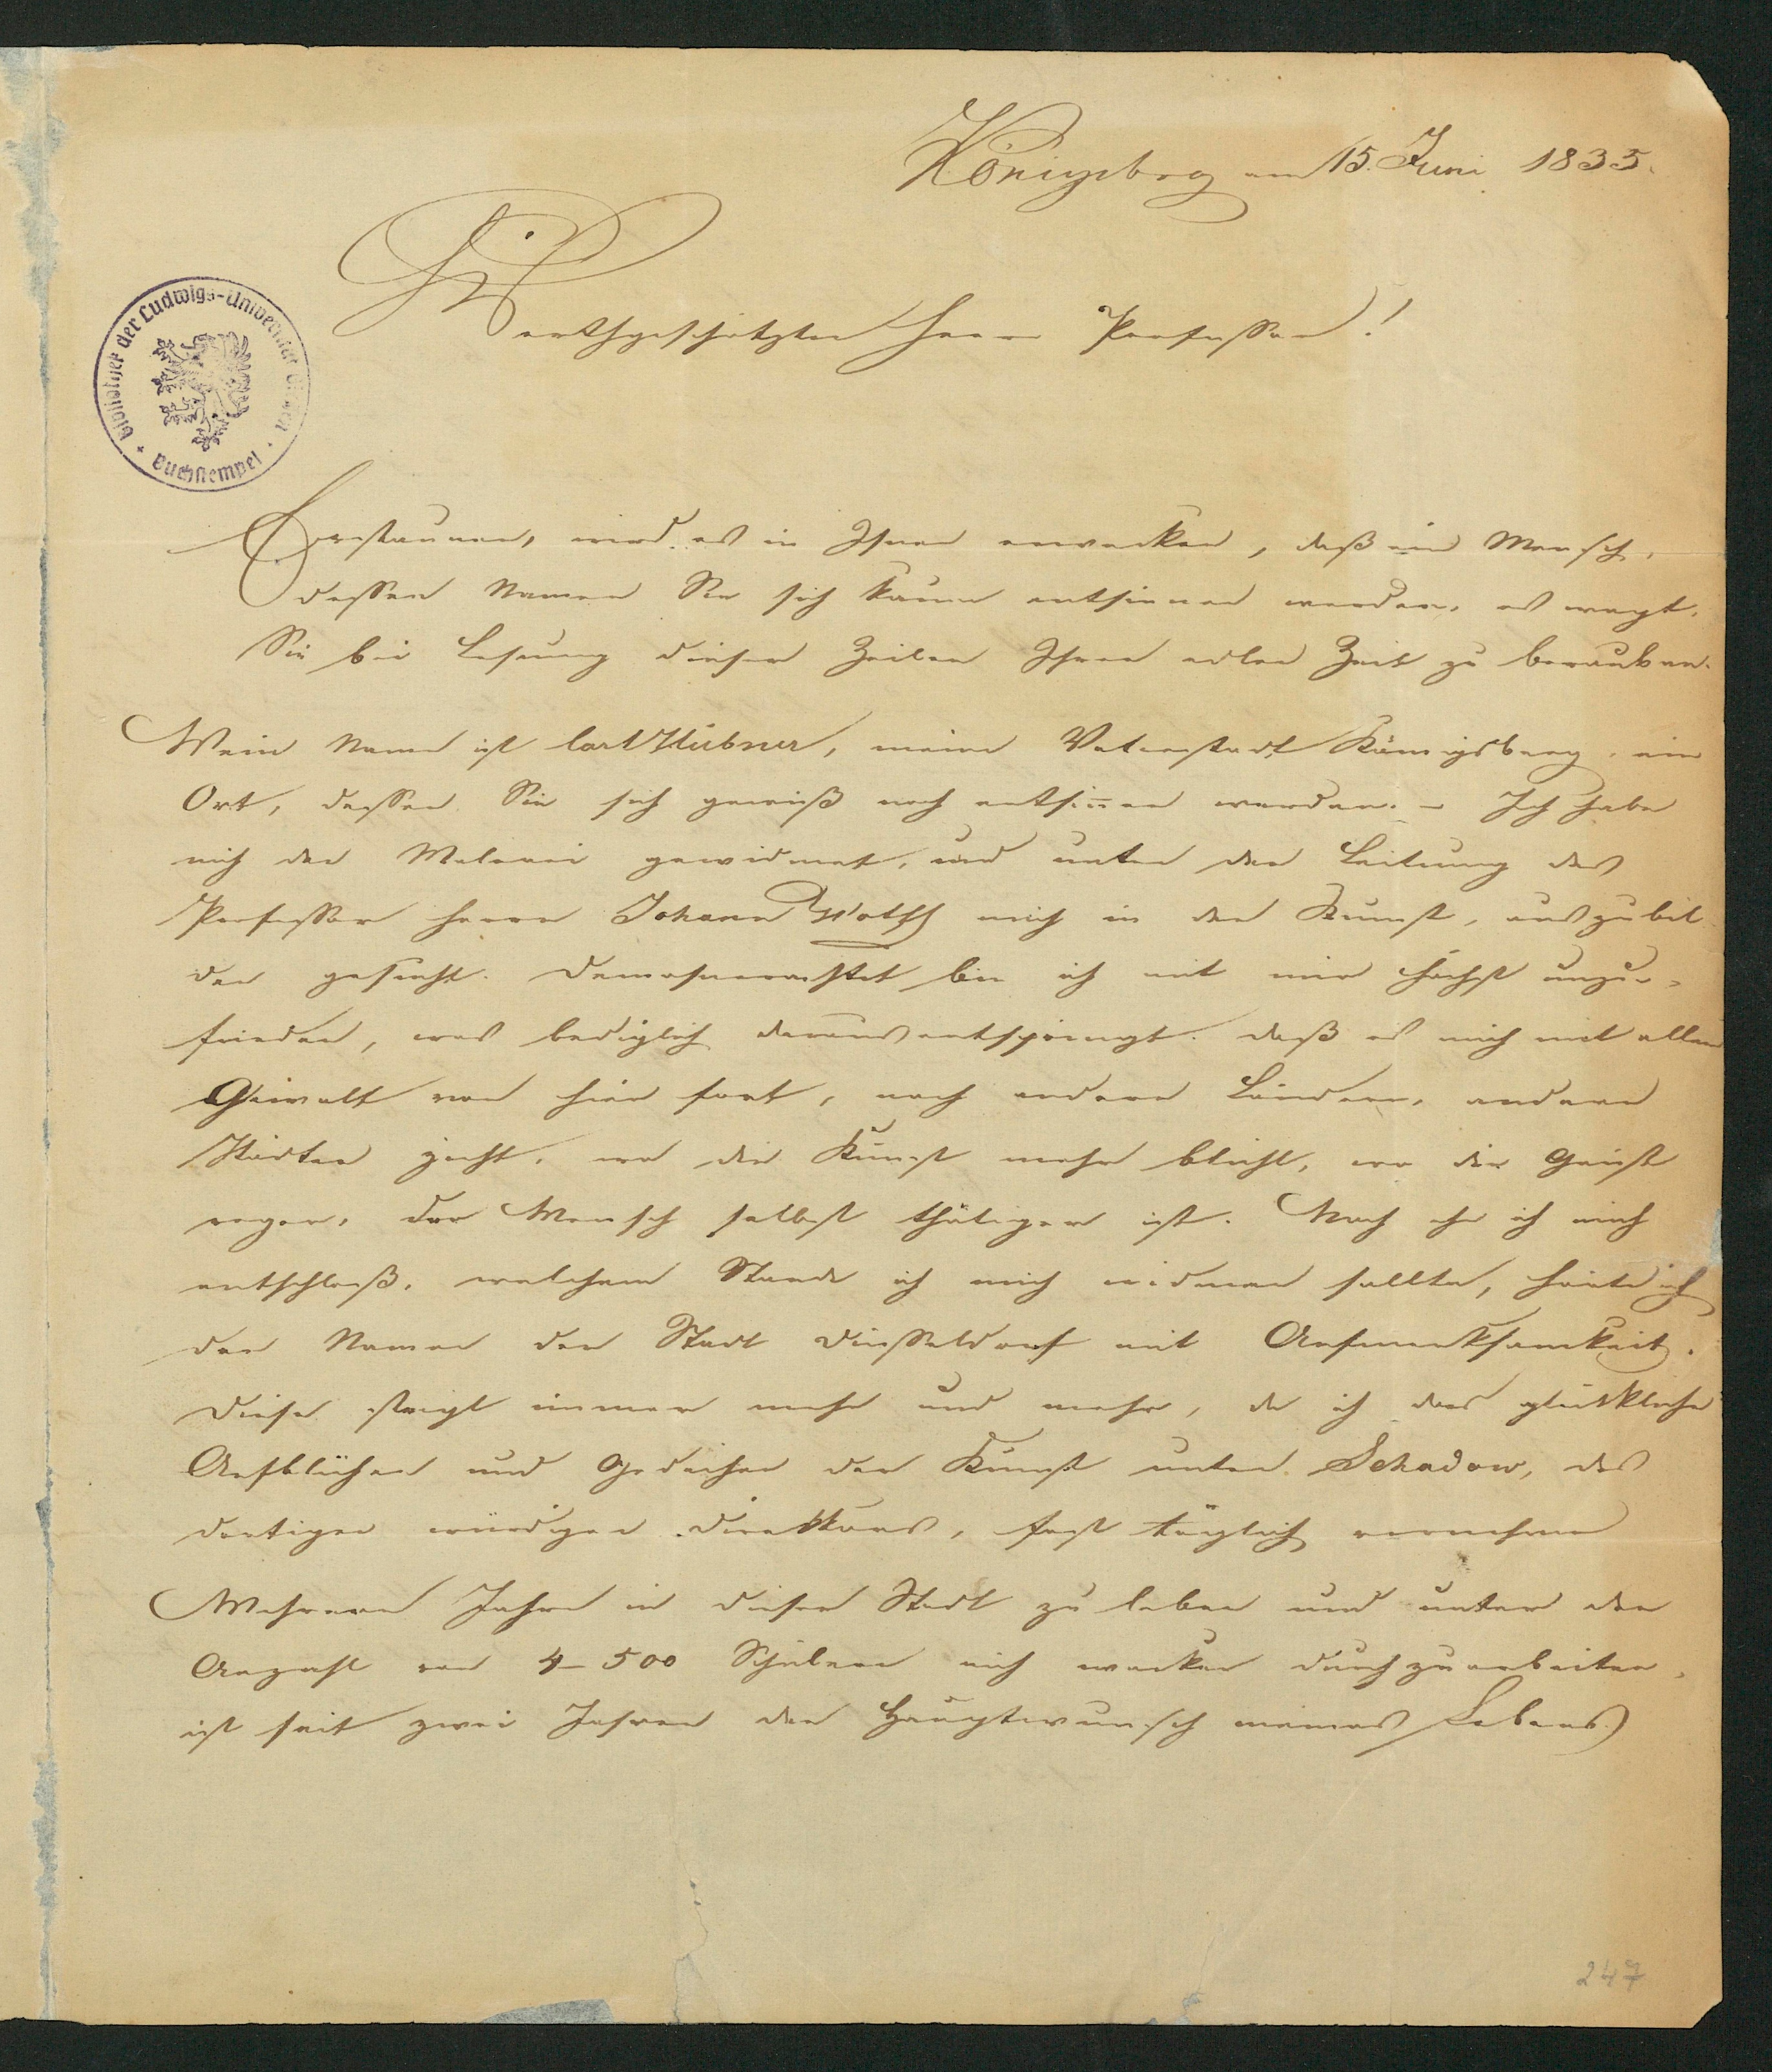 Königsberg am 15. Juni 1835.
Werthgeschätzter Herr Professor!
Bibliothek der Ludwigs-Universität Giessen
Buchstempel
Erstaunen, wird es in Ihnen erwecken, daß ein Mensch,
dessen Namen Sie sich kaum entsinnen werden, es wagt,
Sie bei Lesung dieser Zeilen Ihrer edlen Zeit zu berauben.
Mein Name ist Carl Hübner, meine Vaterstadt Königsberg, ein
Ort, dessen Sie sich gewiß noch entsinnen werden. – Ich habe
mich der Malerei gewidmet, und unter der Leitung des
Professor Herrn Johann Wolff mich in der Kunst, auszubil
den gesucht. Demohnerachtet bin ich mit mir höchst unzu-
frieden, was lediglich daraus entspringt, daß es mich mit aller
Gewalt von hier fort, nach andern Ländern, andern
Städten zieht, wo die Kunst mehr blüht, wo der Geist
reger, der Mensch selbst thätiger ist. Noch ehe ich mich
entschloß, welchem Stande ich mich widmen sollte, hörte ich
den Namen der Stadt Düsseldorf mit Aufmerksamkeit.
Diese steigt immer mehr und mehr, da ich das glückliche
Aufblühen und Gedeihen der Kunst unter Schadow, des
dortigen würdigen Direktors, fast täglich vernehme
Mehrere Jahre in dieser Stadt zu leben und unter der
Anzahl von 4–500 Schülern mich wacker durchzuarbeiten,
ist seit zwei Jahren der Hauptwunsch meines Lebens
247